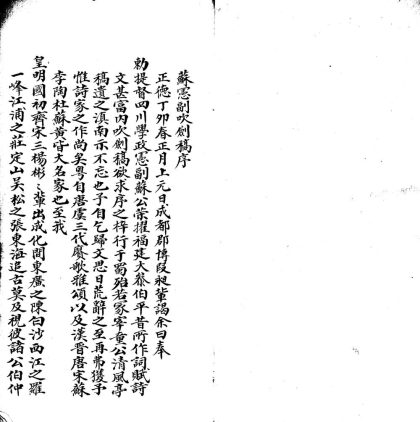 蘇憲副吹劍稿序
正德丁卯春正月上元日成都郡博段昶輩謁余曰奉
勅提督四川學政憲副蘇公榮擢福建大叅伯平昔所作詞賦詩
文甚富內吹劍稿欲求序之梓行于蜀殆若冢宰童公清風亭
稿遺之滇南示不忘也予自乞歸文思日荒辭之至再弗獲予
惟詩家之作尚矣粵自唐虞三代賡歌雅頌以及漢晉唐宋蘇
李陶杜蘇黃皆大名家也至我
皇明國初齊宋三楊彬〻輩出成化間東廣之陳白沙西江之羅
一峰江浦之莊定山吳松之張東海追古莫及視彼諸公伯仲